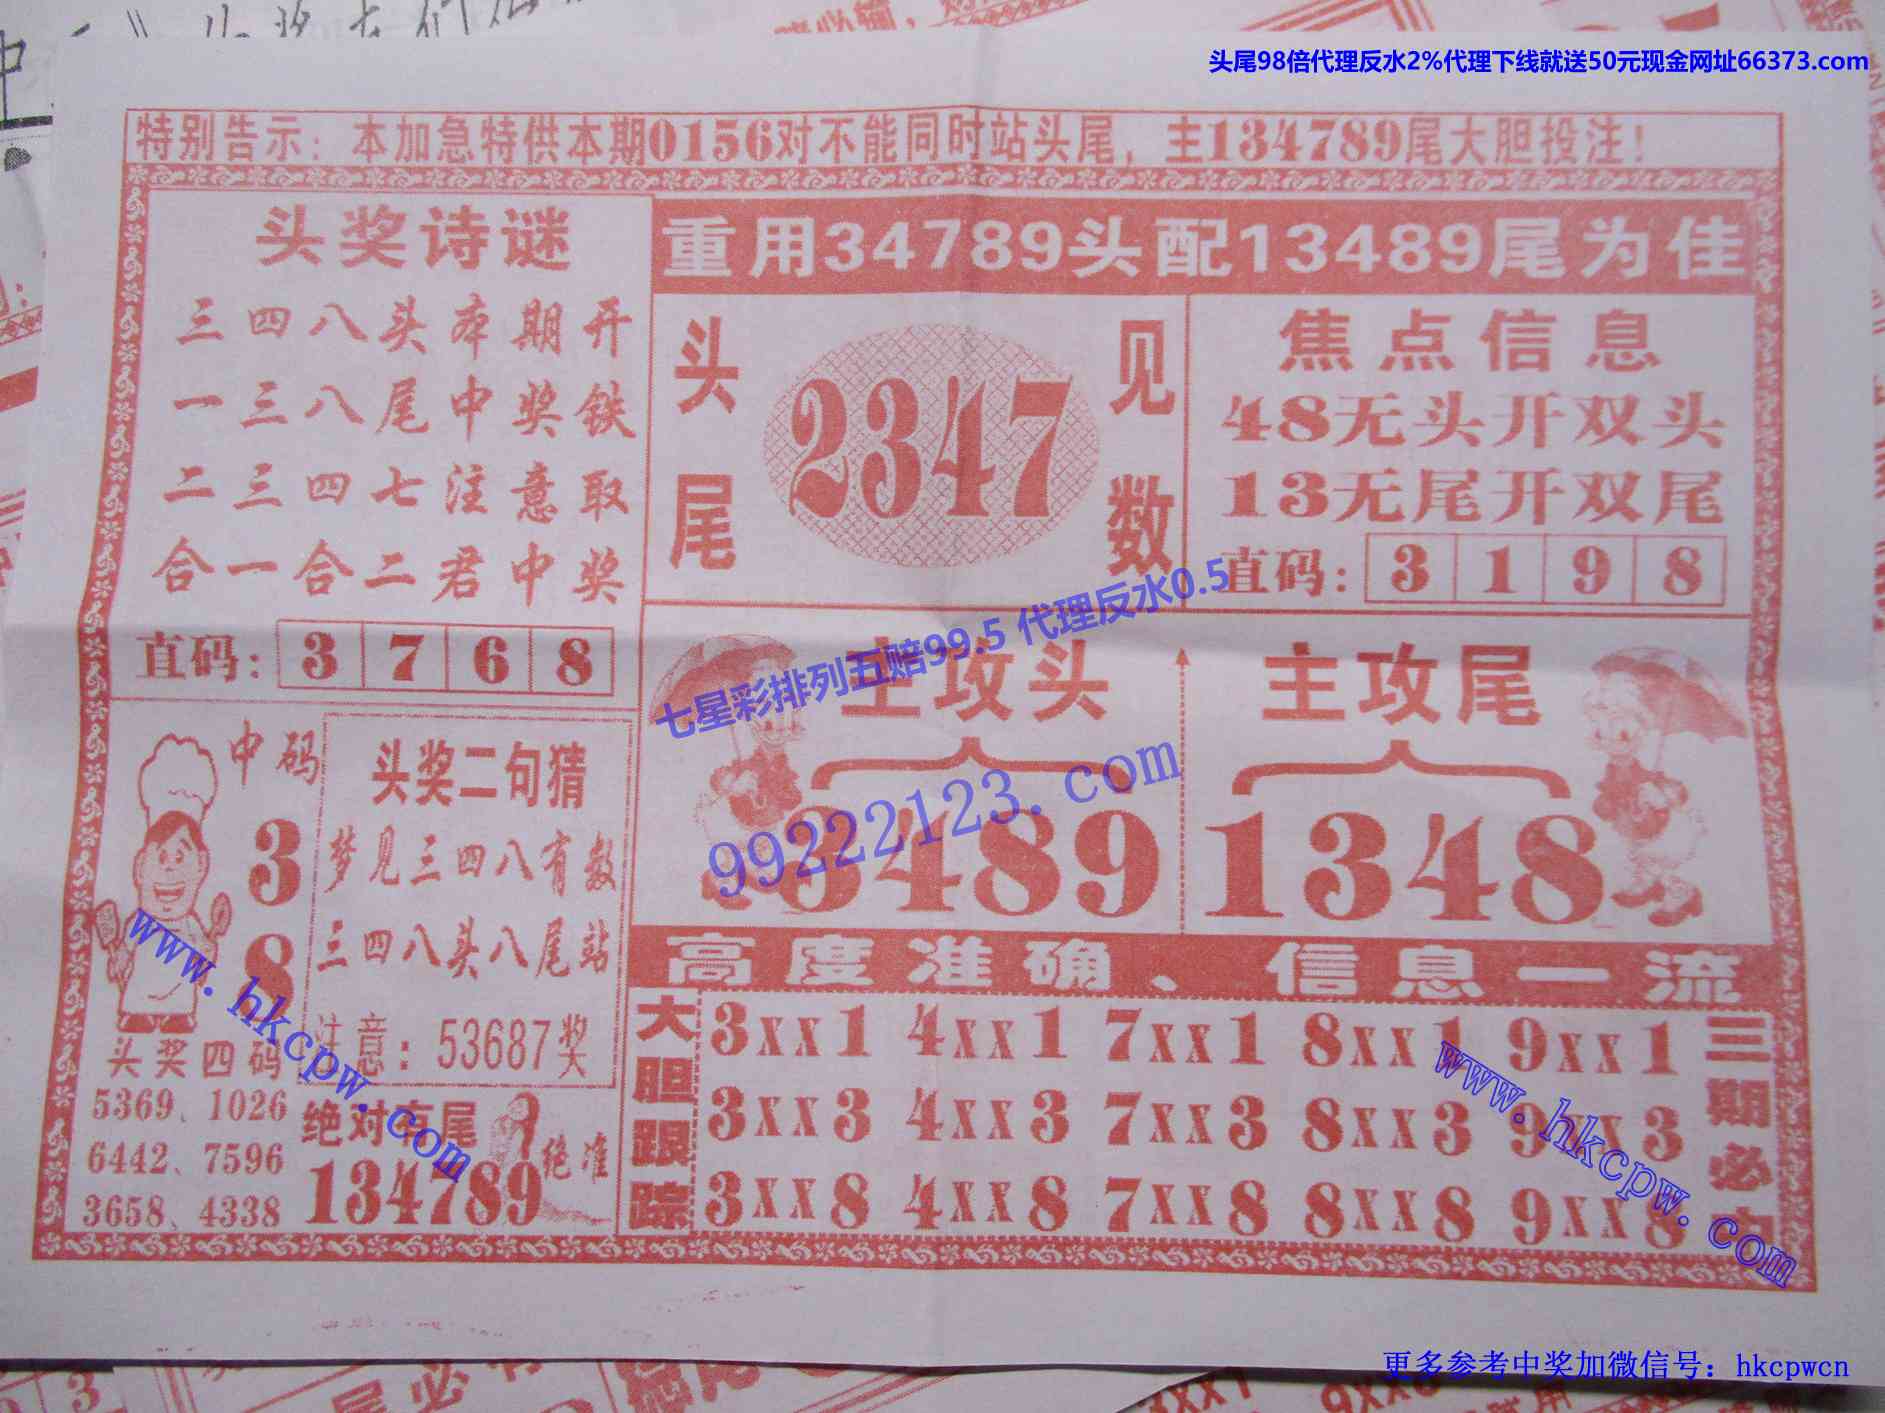 头尾98倍代理反水2%代理下线就送50元现金网址66373.com
特别告示：本加急特供本期0156对不能同时站头尾，主134789尾大胆投注！
头奖诗谜
三四八头本期开
一三八尾中奖铁
二三四七注意取
合一合二君中奖
直码：3 7 6 8
重用34789头配13489尾为佳
头尾
2347
见数
焦点信息
48无头开双头
13无尾开双尾
直码：3 1 9 8
七星彩排列五赔99.5 代理反水0.5
主攻头
3489
主攻尾
1348
99222123.com
中码
3
8
头奖四码
5369、1026
6442、7596
3658、4338
头奖二句猜
梦见三四八有数
三四八头八尾站
注意：53687奖
绝对 尾
134789
绝准
www.hkcpw.com
高度准确、信息一流
大胆跟踪
3xx1 4xx1 7xx1 8xx1 9xx1
3xx3 4xx3 7xx3 8xx3 9xx3
3xx8 4xx8 7xx8 8xx8 9xx8
三期必中
www.hkcpw.com
更多参考中奖加微信号：hkcpwcn